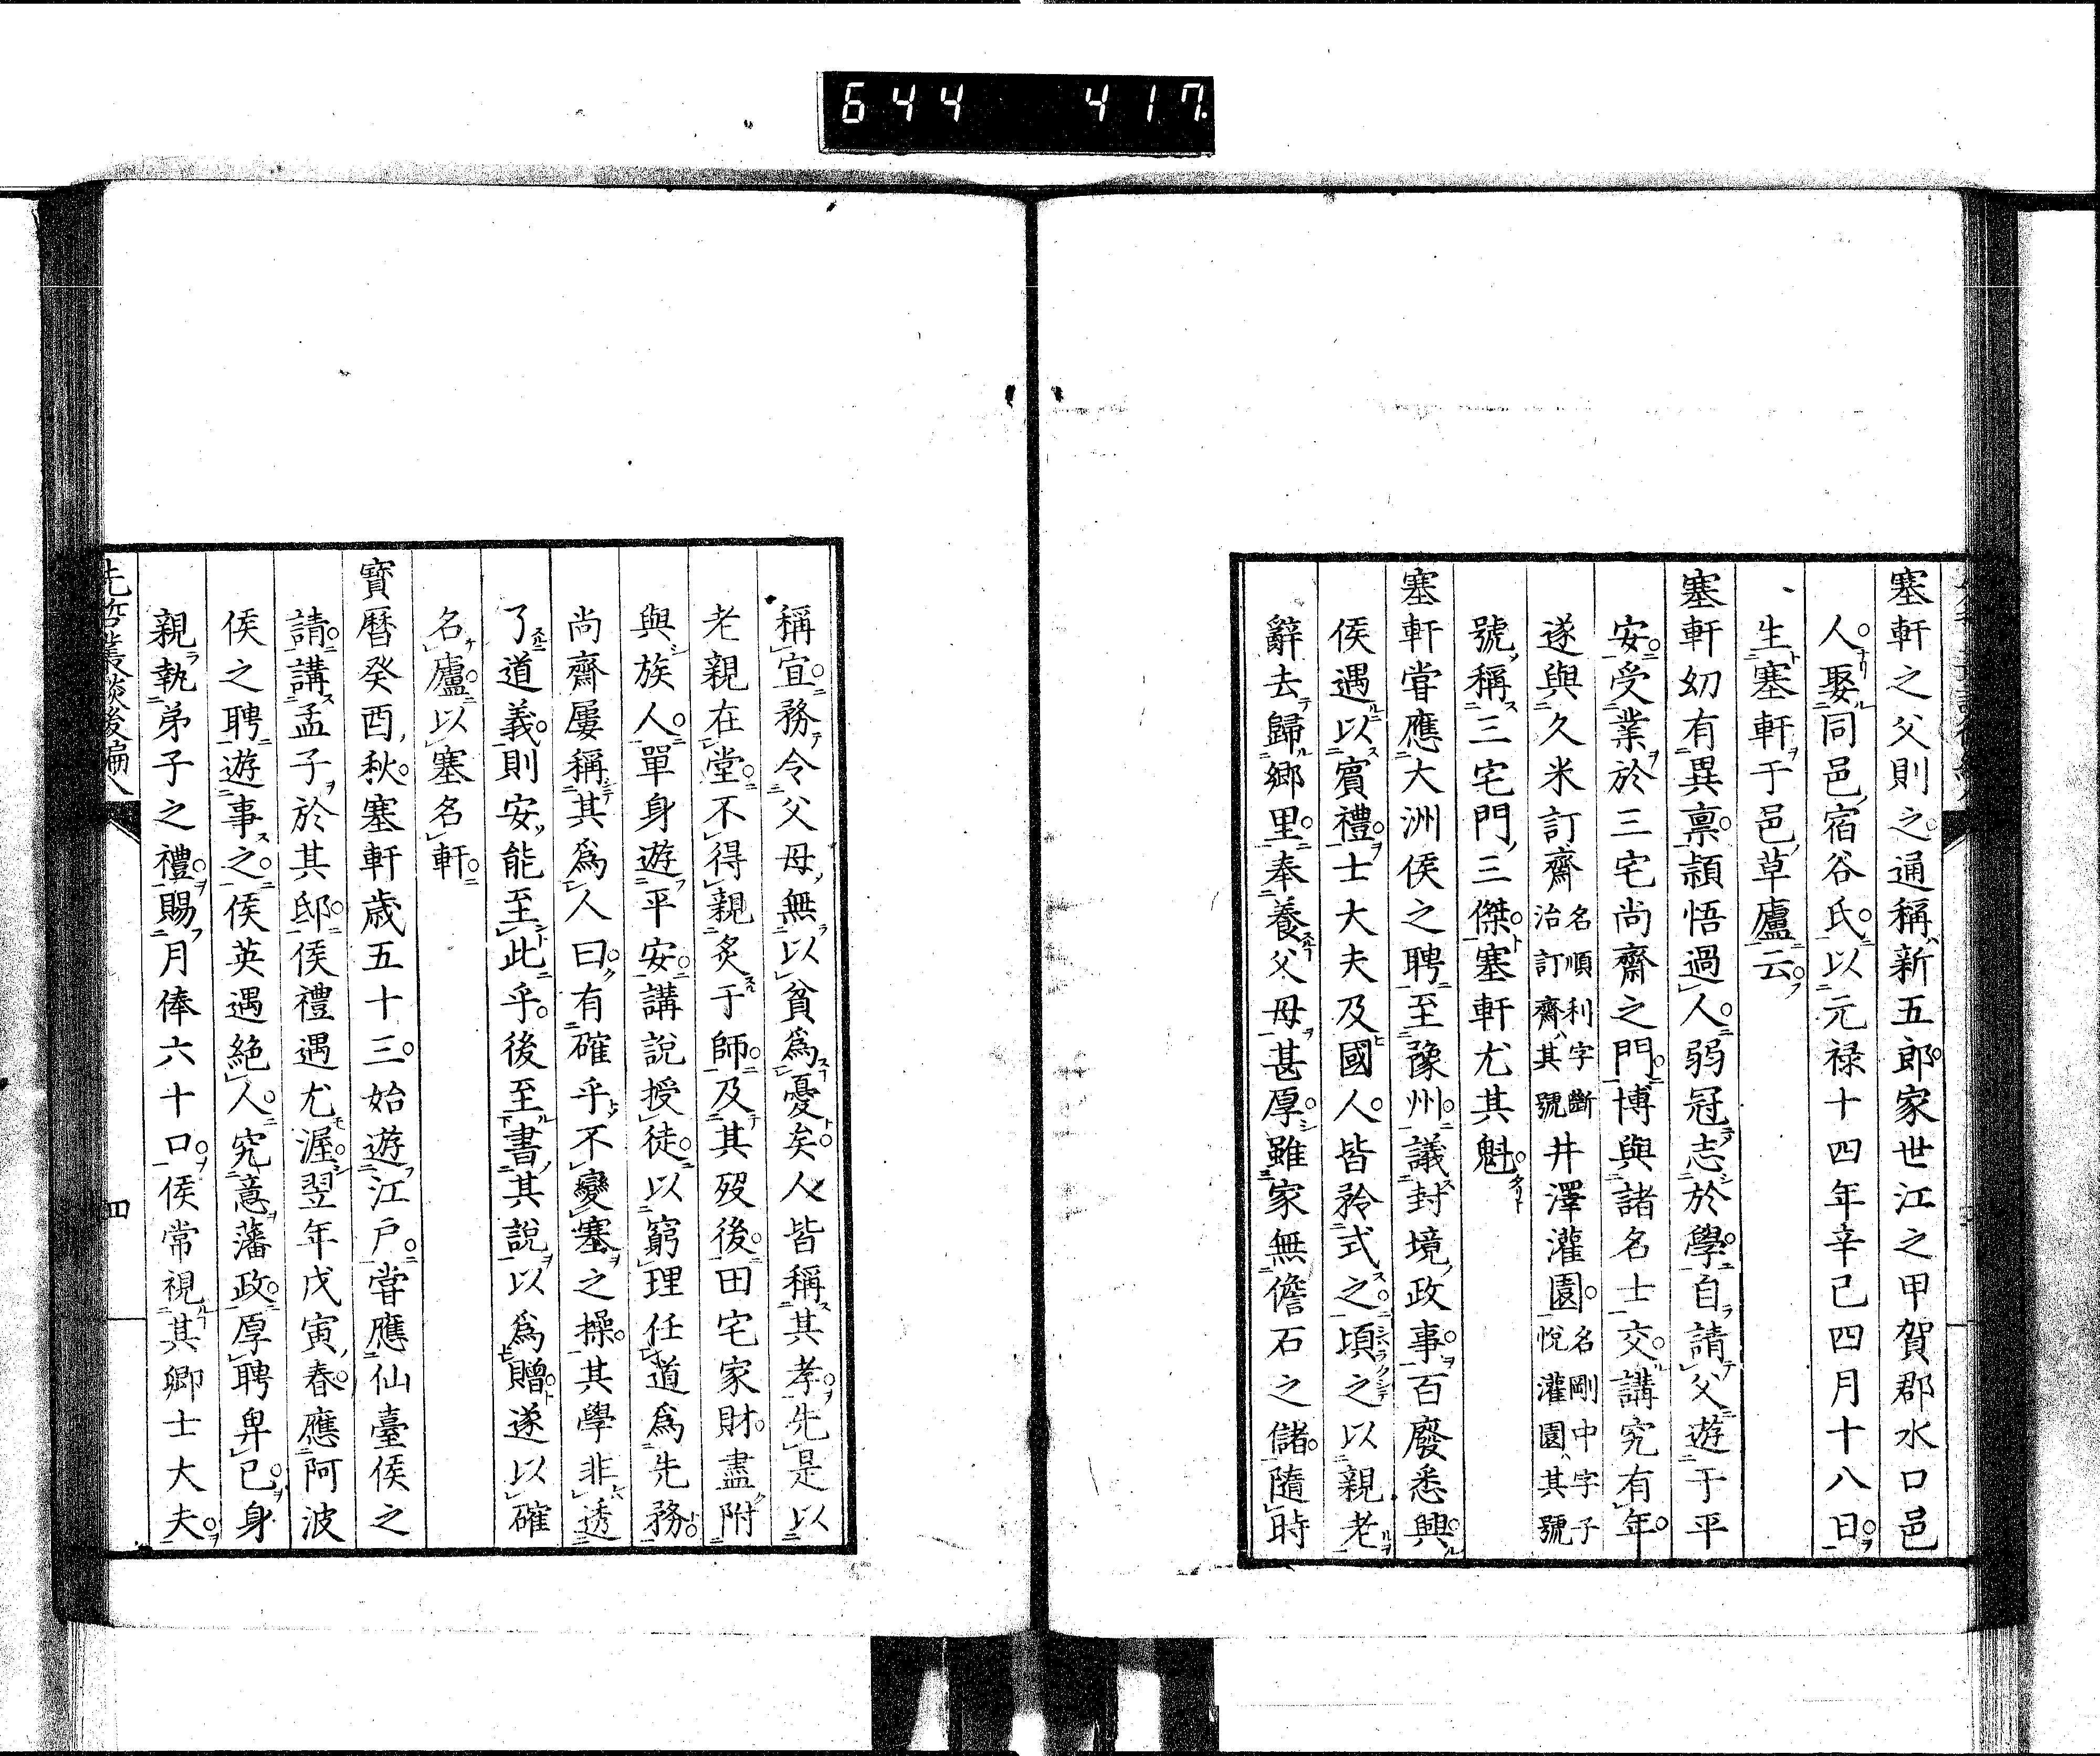 644 417
塞軒之父則之。通稱新五郎。家世江之甲賀郡水口邑
人。娶同邑宿谷氏。以元禄十四年辛巳四月十八日。
生塞軒于邑草廬云。
塞軒幼有異稟。頴悟過人。弱冠志於學。自請父遊于平
安。受業於三宅尚齋之門。博與諸名士交。講究有年。
遂與久米訂齋名順利字斷治訂齋其號井澤灌園。名剛中字子悅灌園其號
號稱三宅門三傑。塞軒尤其魁。
塞軒嘗應大洲侯之聘。至豫州。議封境政事。百廢悉興。
侯遇以賓禮。士大夫及國人。皆矜式之。頃之以親老
辭去歸鄉里。奉養父母甚厚。雖家無儋石之儲。隨時
稱宜。務令父母無以貧爲憂矣。人皆稱其孝。先是以
老親在堂。不得親炙于師。及其歿後。田宅家財盡附
與族人。單身遊平安。講說授徒。以窮理任道爲先務。
尚齋屢稱其爲人曰。有確乎不變塞之操。其學非透
了道義。則安能至此乎。後至書其說以爲贈。遂以確
名廬。以塞名軒。
寶曆癸酉秋。塞軒歲五十三。始遊江戶。嘗應仙臺侯之
請。講孟子於其邸。侯禮遇尤渥。翌年戊寅春。應阿波
侯之聘。遊事之。侯英遇絕人。究意藩政。厚聘卑己。身
親執弟子之禮。賜月俸六十口。侯常視其卿士大夫。
先哲叢談後編八
四